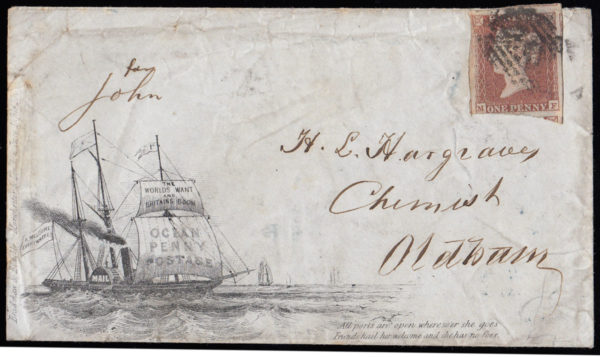 for
John
H. L. Hargraves
Chemist
Oldham
ONE PENNY
M F
THE
WORLDS WANT
AND
BRITAINS BOON
OCEAN
PENNY
POSTAGE
MAIL
All ports are open wheresoever she goes
Friends hail her welcome and she has no foes.